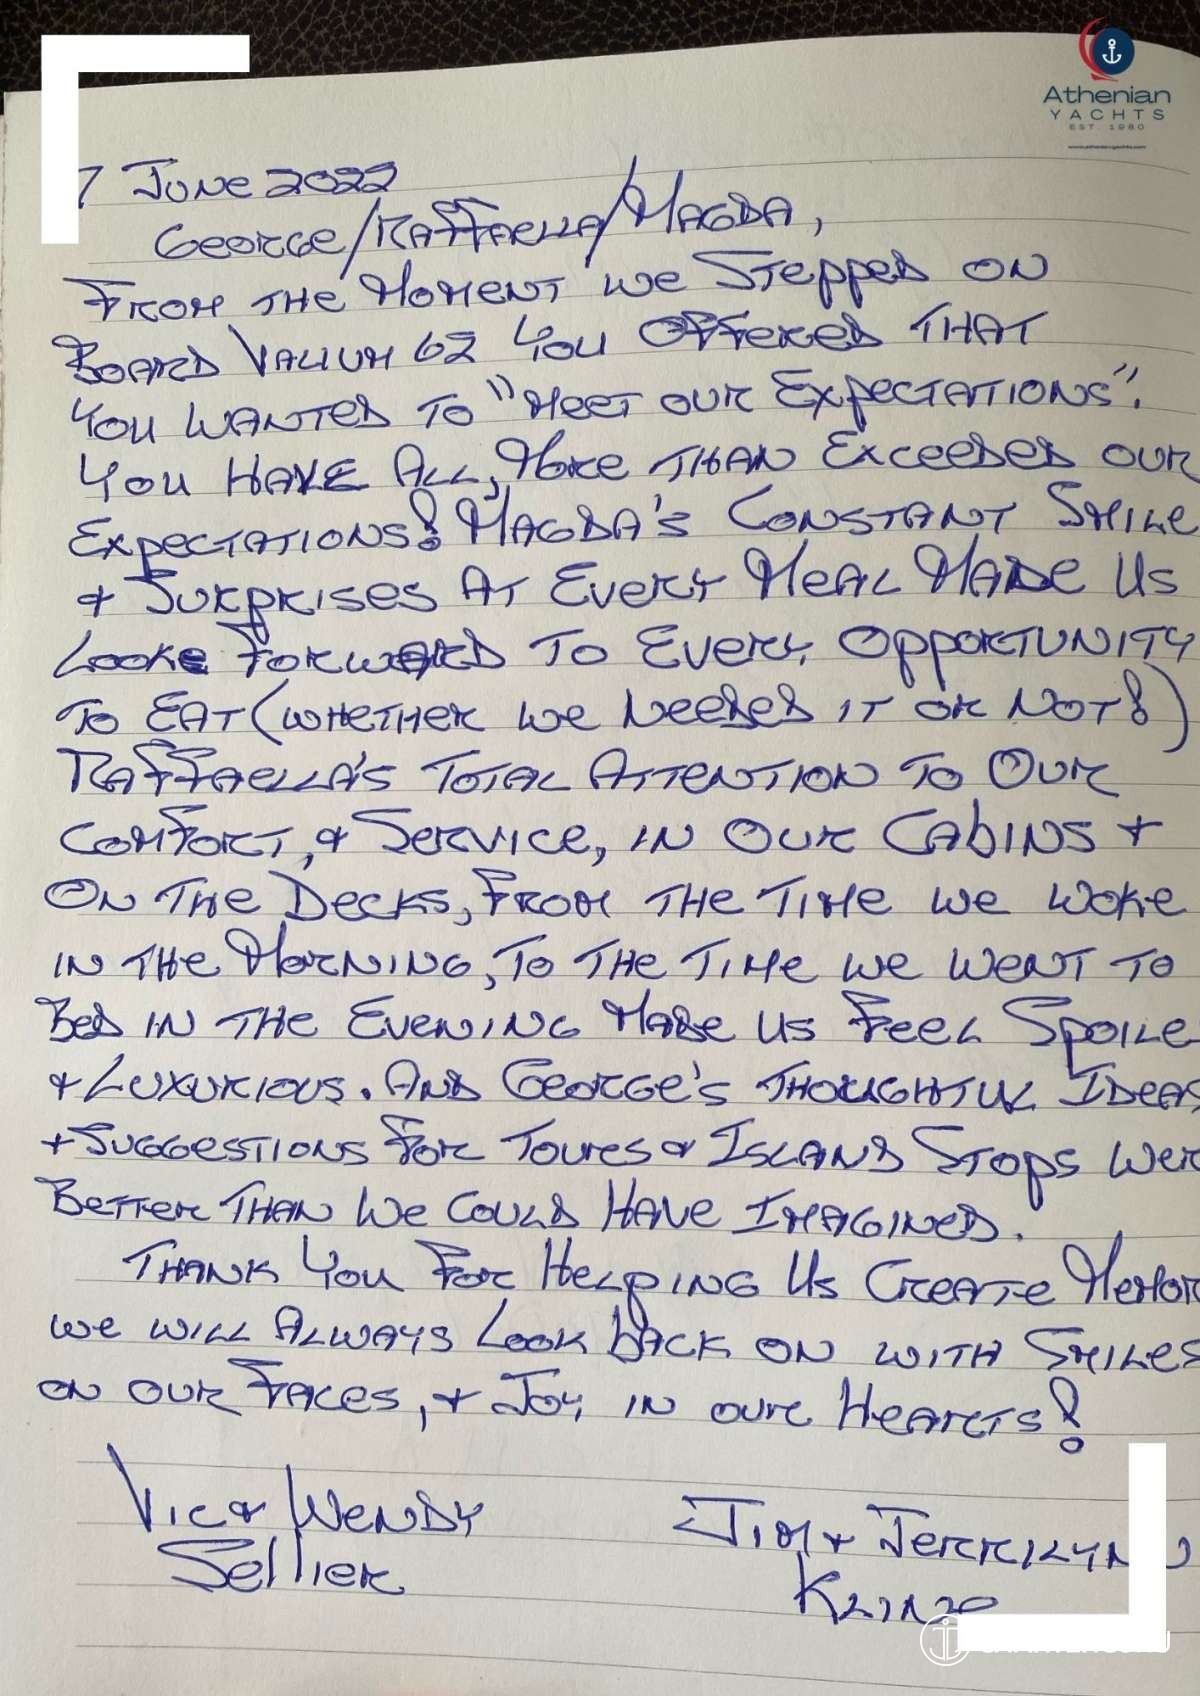 Athenian
YACHTS
EST. 1980
www.athenianyachts.com
7 JUNE 2022
GEORGE/RAFFAELLA/MAGDA,
FROM THE MOMENT WE STEPPED ON
BOARD VALIUM 62 YOU OFFERED THAT
YOU WANTED TO "MEET OUR EXPECTATIONS".
YOU HAVE ALL, MORE THAN EXCEEDED OUR
EXPECTATIONS! MAGDA'S CONSTANT SMILE
& SURPRISES AT EVERY MEAL MADE US
LOOK FORWARD TO EVERY OPPORTUNITY
TO EAT (WHETHER WE NEEDED IT OR NOT!)
RAFFAELLA'S TOTAL ATTENTION TO OUR
COMFORT, & SERVICE, IN OUR CABINS &
ON THE DECKS, FROM THE TIME WE WOKE
IN THE MORNING, TO THE TIME WE WENT TO
BED IN THE EVENING MADE US FEEL SPOILE
& LUXURIOUS. AND GEORGE'S THOUGHTFUL IDEAS
& SUGGESTIONS FOR TOURS & ISLAND STOPS WER
BETTER THAN WE COULD HAVE IMAGINED.
THANK YOU FOR HELPING US CREATE MEMOR
WE WILL ALWAYS LOOK BACK ON WITH SMILES
ON OUR FACES, & JOY IN OUR HEARTS!
VIC & WENDY
SELLIER
JIM & JERRILYN